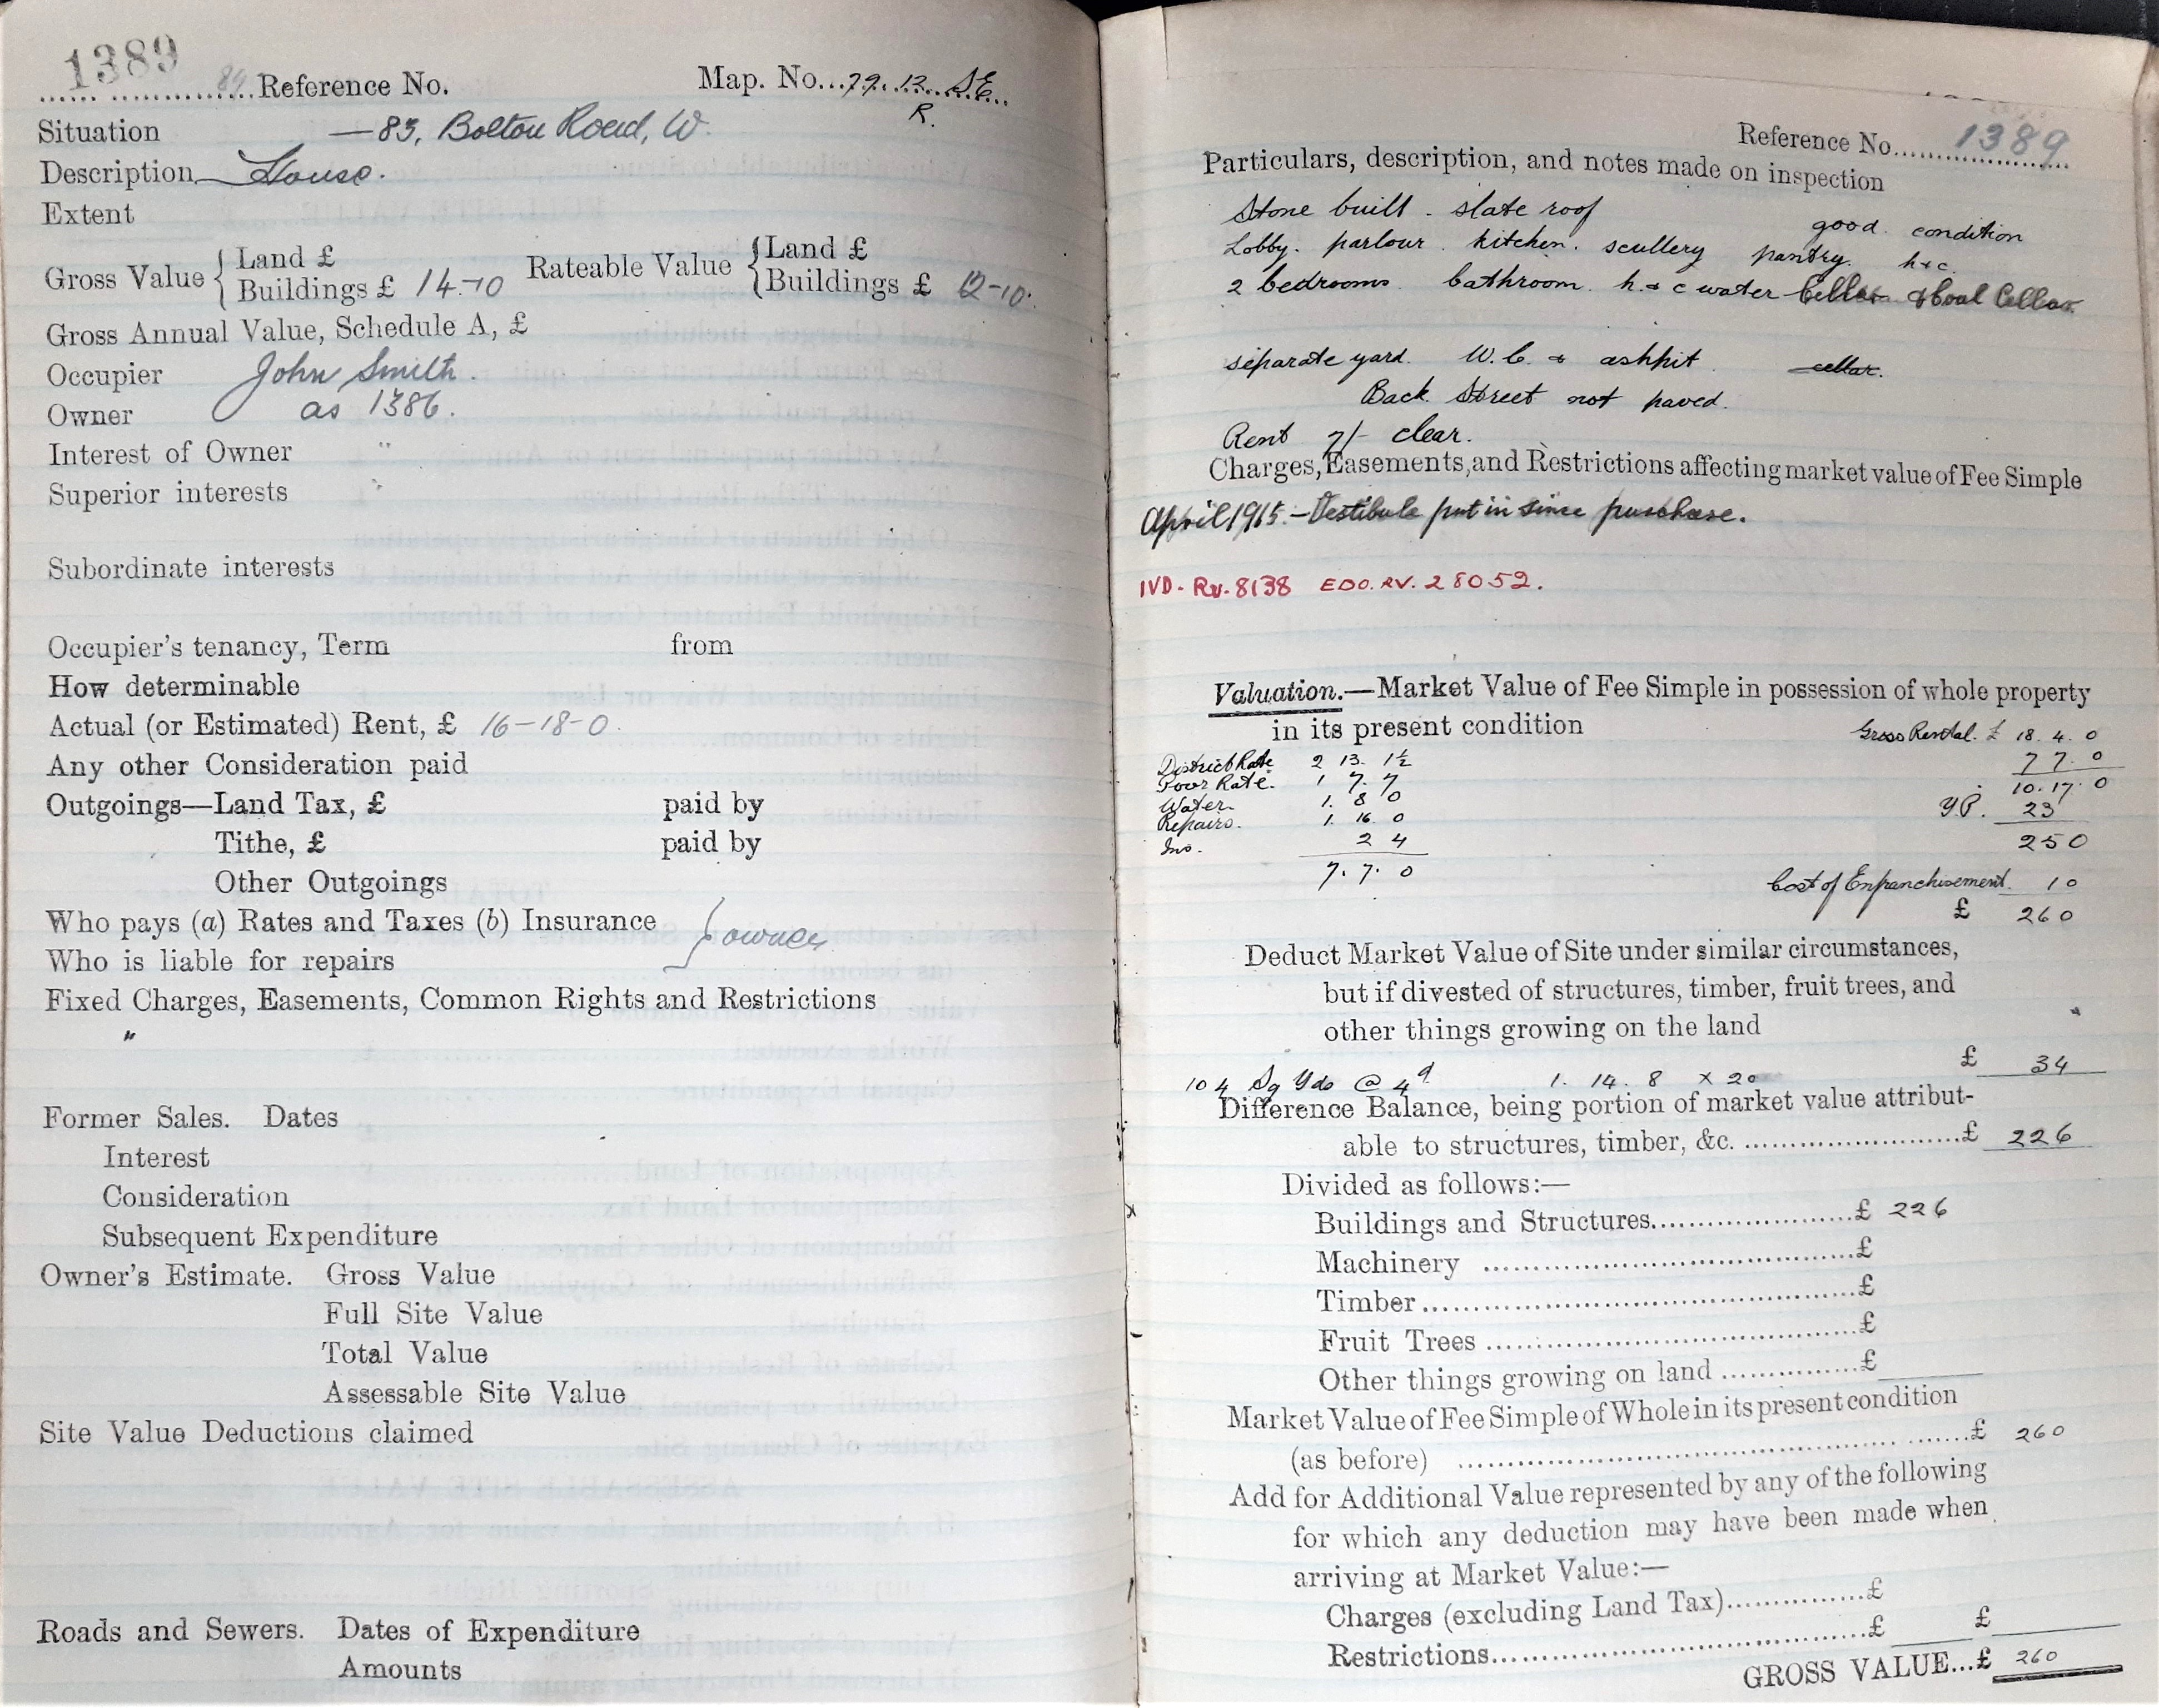 1389
Reference No. Map. No. 79. 12. SE
R.
Situation — 83, Bolton Road, W.
Description House.
Extent
Gross Value { Land £ Rateable Value { Land £
Buildings £ 14-10 Buildings £ 12-10.
Gross Annual Value, Schedule A, £
Occupier John Smith.
Owner as 1386.
Interest of Owner "
Superior interests "
Subordinate interests
Occupier's tenancy, Term from
How determinable
Actual (or Estimated) Rent, £ 16-18-0.
Any other Consideration paid
Outgoings—Land Tax, £ paid by
Tithe, £ paid by
Other Outgoings
Who pays (a) Rates and Taxes (b) Insurance } owner
Who is liable for repairs
Fixed Charges, Easements, Common Rights and Restrictions
"
Former Sales. Dates
Interest
Consideration
Subsequent Expenditure
Owner's Estimate. Gross Value
Full Site Value
Total Value
Assessable Site Value
Site Value Deductions claimed
Roads and Sewers. Dates of Expenditure
Amounts
Reference No. 1389
Particulars, description, and notes made on inspection
Stone built. slate roof good condition
Lobby. parlour. kitchen. scullery pantry. h & c.
2 bedrooms bathroom. h. & c water Cellar & Coal Cellar
separate yard. W.C. & ashpit. cellar.
Back Street not paved.
Rent 7/- clear.
Charges, Easements, and Restrictions affecting market value of Fee Simple
April 1915.—Vestibule put in since purchase.
IVD. RV. 8138 EDO. RV. 28052.
Valuation.—Market Value of Fee Simple in possession of whole property
in its present condition Gross Rental. £ 18. 4. 0
District Rate 2 13. 1½ 7 7. 0
Poor Rate. 1 7. 7 10. 17. 0
Water 1. 8 0 Y.P. 23
Repairs. 1. 16. 0
Ins. 2 4 250
7. 7. 0 Cost of Enfranchisement. 10
£ 260
Deduct Market Value of Site under similar circumstances,
but if divested of structures, timber, fruit trees, and
other things growing on the land
£ 34
104 Sq Yds @ 4d 1. 14. 8 x 20
Difference Balance, being portion of market value attribut-
able to structures, timber, &c. £ 226
Divided as follows:—
Buildings and Structures £ 226
Machinery £
Timber £
Fruit Trees £
Other things growing on land £
Market Value of Fee Simple of Whole in its present condition
(as before) £ 260
Add for Additional Value represented by any of the following
for which any deduction may have been made when
arriving at Market Value:—
Charges (excluding Land Tax) £
Restrictions £ £
GROSS VALUE...£ 260